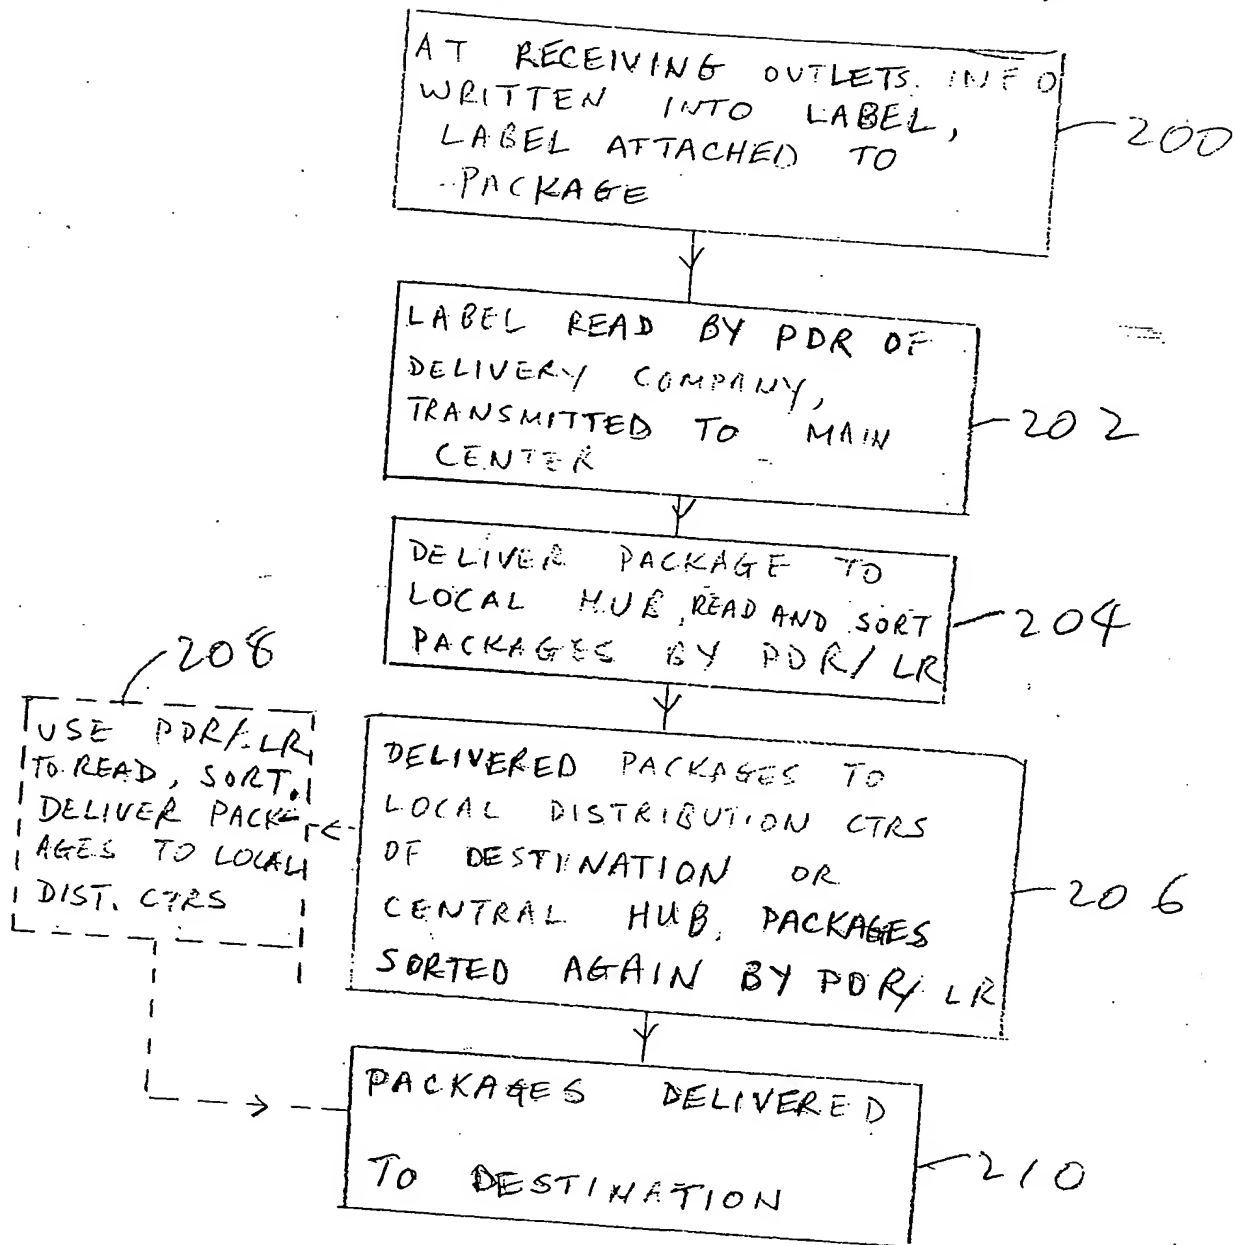 AT RECEIVING OUTLETS. INFO
WRITTEN INTO LABEL,
LABEL ATTACHED TO
PACKAGE
200
LABEL READ BY PDR OF
DELIVERY COMPANY,
TRANSMITTED TO MAIN
CENTER
202
DELIVER PACKAGE TO
LOCAL HUB, READ AND SORT
PACKAGES BY PDR/LR
204
208
USE PDR/LR
TO READ, SORT.
DELIVER PACK-
AGES TO LOCAL
DIST. CTRS
DELIVERED PACKAGES TO
LOCAL DISTRIBUTION CTRS
OF DESTINATION OR
CENTRAL HUB, PACKAGES
SORTED AGAIN BY PDR/LR
206
PACKAGES DELIVERED
TO DESTINATION
210